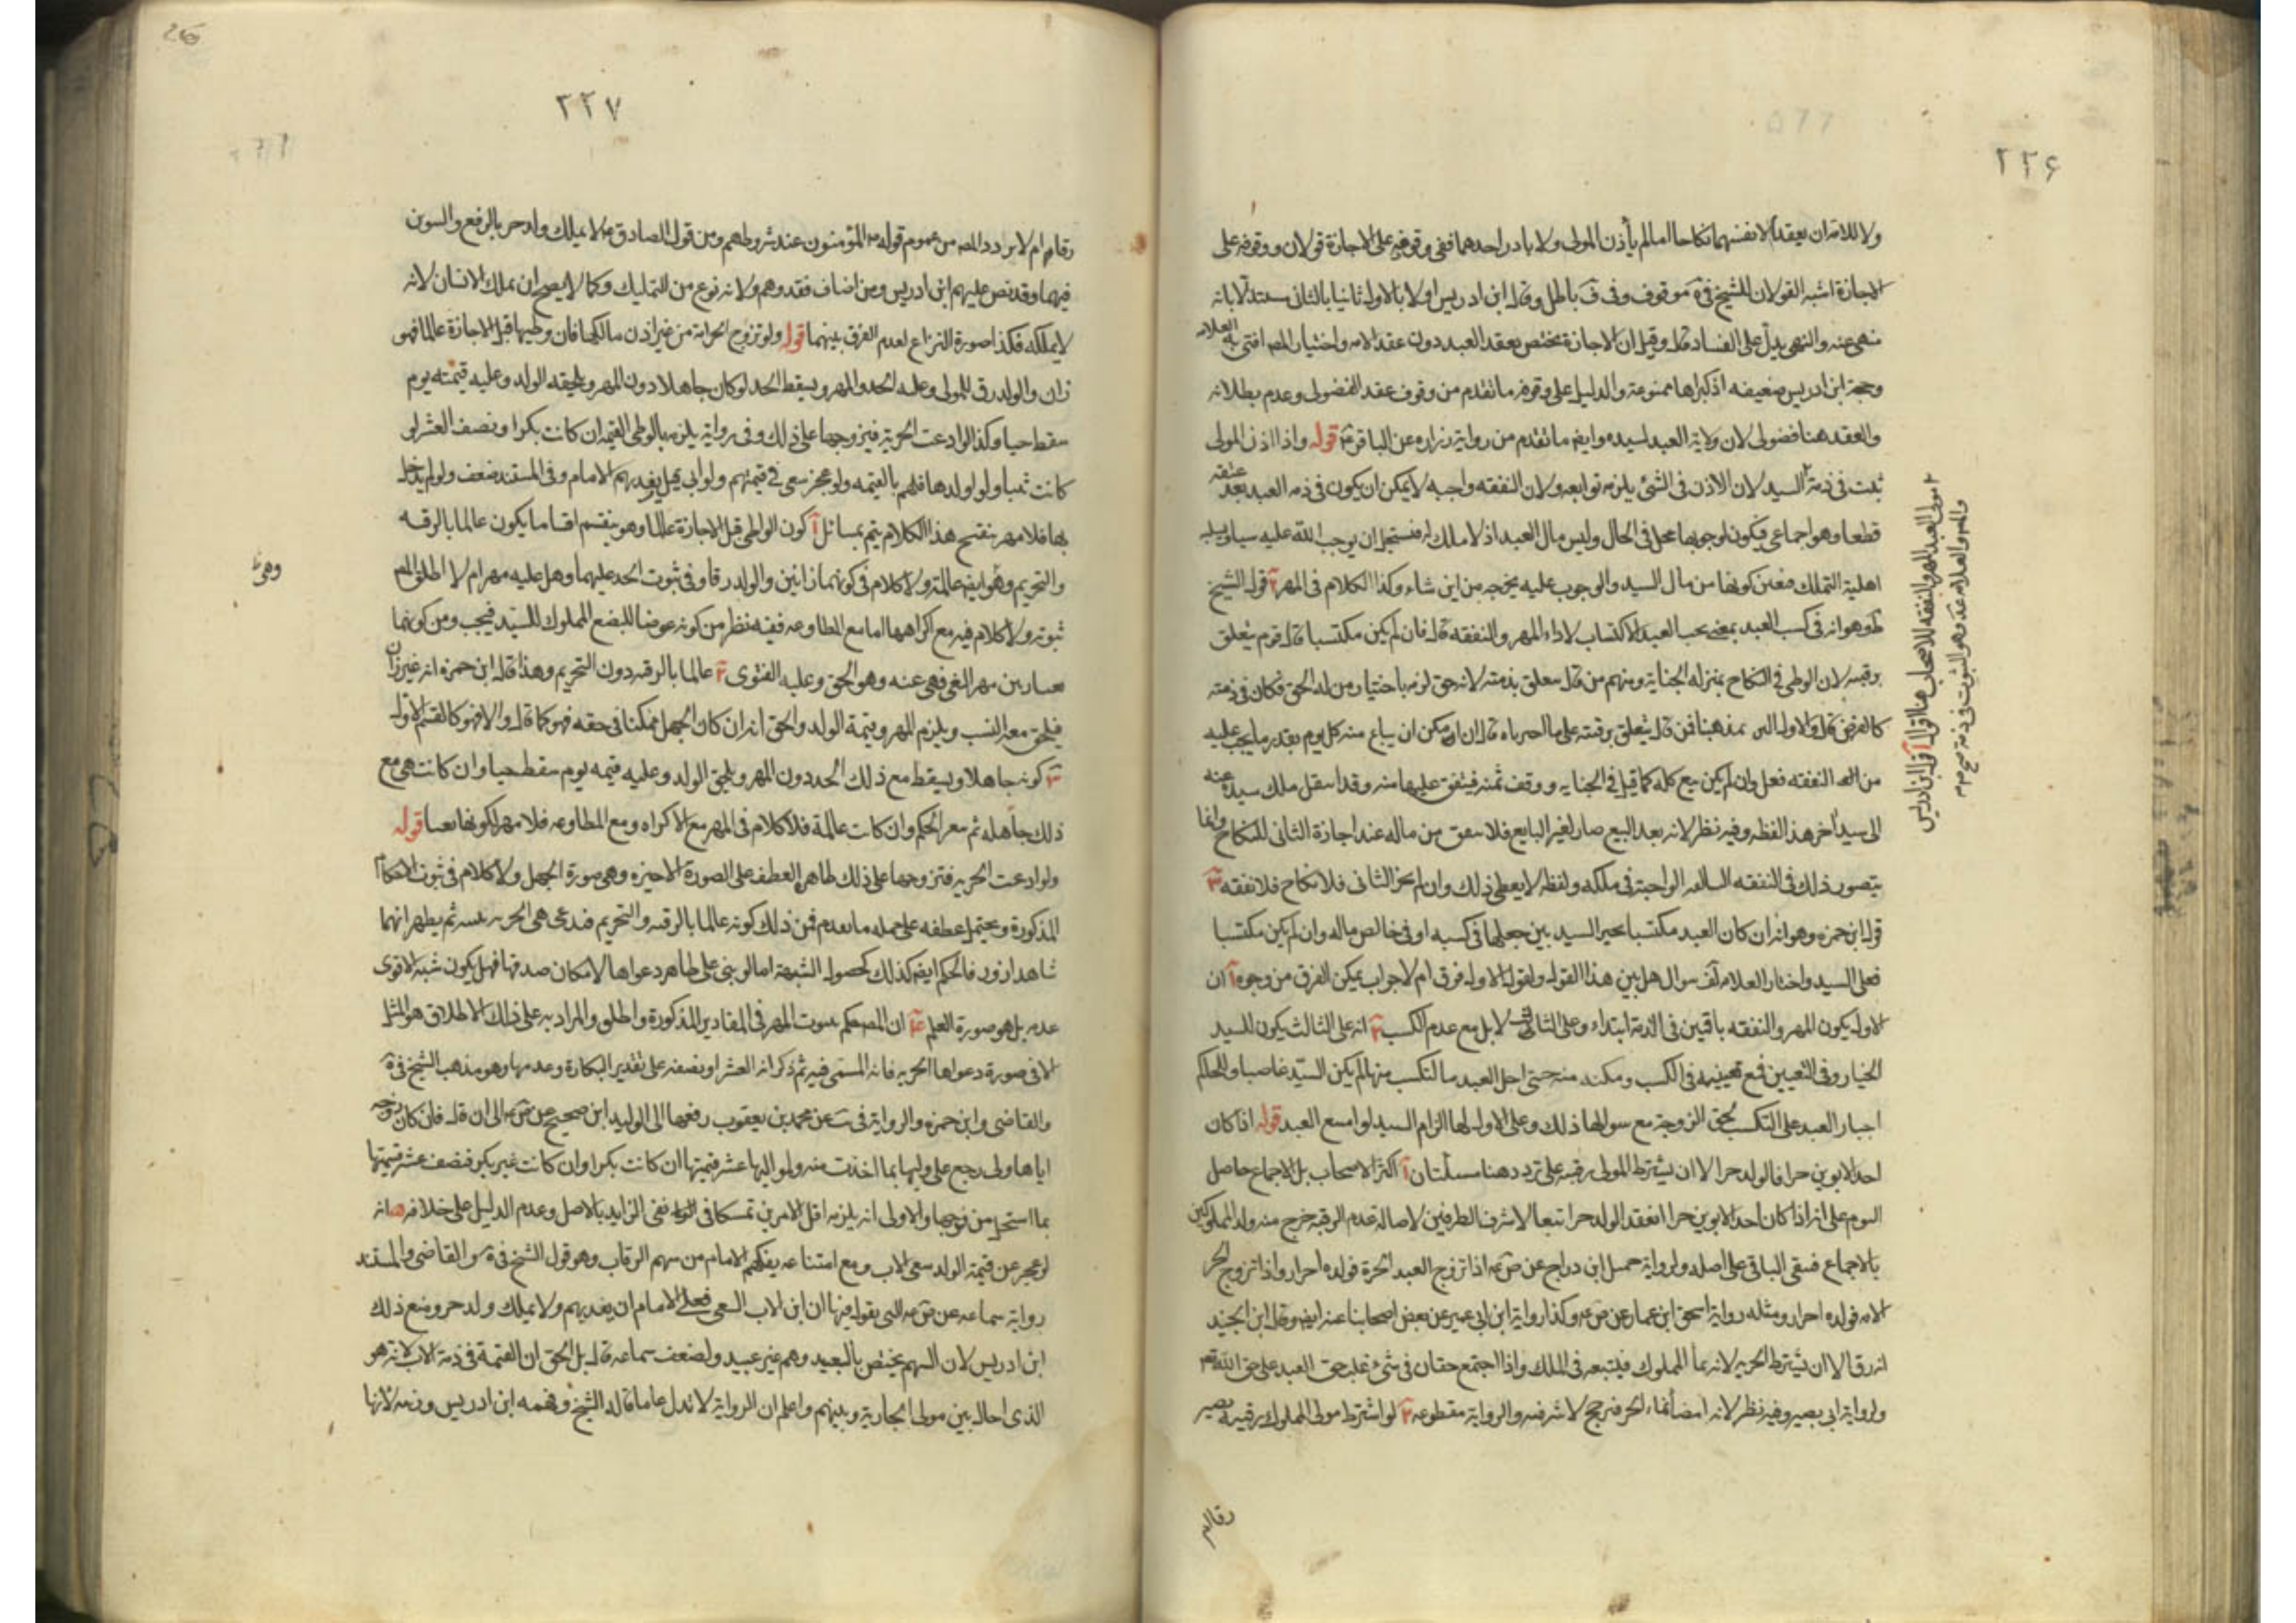 ٢٢۶
ولا للامة ان يعقدا لانفسهما نكاحا اما لم يأذن المولى ولا بادر احدهما ففي وقوفه على الاجازة قولان ووقوفه على
الاجازة اشبه القولان للشيخ في ية موقوف وفي ف باطل وقال ابن ادريس اولا بالاول وثانيا بالثاني مستدلا بانه
منهى عنه والنهى يدل على الفساد قال وقيل ان الاجازة تختص بعقد العبد دون عقد الامه واختيار المص افتى به العلامه
وحجة ابن ادريس ضعيفه اذ كبراها ممنوعة والدليل على وقوفه ما تقدم من وقوف عقد الفضولى وعدم بطلانه
والعقد هنا فضولى لان ولاية العبد لسيده وايضا ما تقدم من رواية زراره عن الباقر ع قوله واذا اذن المولى
ثبت في ذمة السيد لان الاذن في الشئ يلزمه توابعه ولان النفقه واجبه لا يمكن ان يكون في ذمه العبد بعد عتقه
قطعا وهو اجماعى فيكون لوجوبها محل في الحال وليس مال العبد اذ لا ملك له فيستحيل ان يوجب الله عليه سيما
اهلية التملك فتعين كونها من مال السيد والوجوب عليه يخرجه من اين شاء وكذا الكلام في المهر آ قول الشيخ
ط وهو انه في كسب العبد بمعنى يجب العبد الاكتساب لاداء المهر والنفقه قال فان لم يكن مكتسبا قال قوم يتعلق
برقبته لان الوطى في النكاح بمنزله الجناية ومنهم من قال يتعلق بذمته لانه حق لزمه باختيار من له الحق فكان في ذمته
كالقرض قال والاول اليق بمذهبنا فمن قال يتعلق برقبته على ما اخبرناه قال ان امكن ان يباع منه كل يوم بقدر ما يجب عليه
من النفقه فعل وان لم يكن بيع كله كما قيل في الجنايه ووقف ثمنه فينفق عليها منه وقد انتقل ملك سيده عنه
الى سيد آخر هذا لفظه وفيه نظر لانه بعد البيع صار لغير البايع فلا ينفق من ماله عند اجازة الثانى للنكاح وانما
يتصور ذلك في النفقه السالفه الواجبة في ملكه ولفظه لا يعطى ذلك وان لم يجز الثانى فلا نكاح فلا نفقه ٣
قول ابن حمزه وهو انه ان كان العبد مكتسبا يخير السيد بين جعلها في كسبه او في خالص ماله وان لم يكن مكتسبا
فعلى السيد واختار العلامه لف سوال هل بين هذا القول ولقول الاول فرق ام لا جواب يمكن الفرق من وجوه آ ان
الاول يكون المهر والنفقه باقيين في الذمة ابتداء وعلى الثانى لا بل مع عدم الكسب ٢ انه على الثالث يكون للسيد
الخيار وفي التعيين فمع تعيينه في الكسب ومكنه منه حتى احل العبد بالتكسب منها لم يكن السيد غاصبا وللحاكم
اجبار العبد على التكسب لحق الزوجة مع سوالها ذلك وعلى الاول لها الزام السيد لو امتنع العبد قوله اذا كان
احد الابوين حرا فالولد حر الا ان يشترط المولى رقيته على تردد هنا مسئلتان آ اكثر الاصحاب بل الاجماع حاصل
اليوم على انه اذا كان احد الابوين حرا انعقد الولد حرا تبعا لاشرف الطرفين لاصالة عدم الرقية خرج منه ولد المملوكين
بالاجماع فبقى الباقى على اصله ولرواية جميل ابن دراج عن ص ع اذا تزوج العبد الحرة فولده احرار واذا تزوج الحر
الامه فولده احرار ومثله رواية اسحق ابن عمار عن ص ع وكذا رواية ابن ابى عمير عن بعض اصحابنا عنه ايضا وقال ابن الجنيد
انه رق الا ان يشترط الحريه لانه نماء المملوك فيتبعه في الملك واذا اجتمع حقان في شئ غلب حق العبد على حق الله تع
ولرواية ابى بصير وفيه نظر لانه ايضا نماء الحر فيرجح لاشرفيته والرواية مقطوعه ٢ لو اشترط مولى المملوك رقيته يصير
مولى العبد المهر والنفقه للاصحاب هنا اقوال آ قول ابن ادريس
والمص والعلامه عد وهو الثبوت في ذمته صح
رقا ام
٢٢٧
رقا ام لا تردد المص من عموم قوله ص المؤمنون عند شروطهم ومن قول الصادق ع لا يملك ولد حر بالرفع والتنوين
فيهما وقد نص عليه ابن ادريس ومن اضاف فقد وهم ولانه نوع من التمليك وكما لا يصح ان يملك الانسان لانه
لا يملكه فكذا صورة النزاع لعدم الفرق بينهما قوله ولو تزوج الحر امة من غير اذن مالكها فان وطيها قبل الاجازة عالما فهو
زان والولد رق للمولى وعليه الحد والمهر ويسقط الحد لو كان جاهلا دون المهر ويلحقه الولد وعليه قيمته يوم
سقط حيا وكذا لو ادعت الحرية فتزوجها على ذلك وفي رواية يلزمه بالوطى القيمة ان كانت بكرا ونصف العشر لو
كانت ثيبا ولو اولدها فكهم بالقيمه ولو عجز سعى في قيمتهم ولو ابى قيل يفديهم الامام وفي المستند ضعف ولو لم يدخل
بها فلا مهر ينقح هذا الكلام يتم بمسائل آ كون الواطى قبل الاجازة عالما وهو ينقسم اقساما يكون عالما بالرقيه
والتحريم وهى ايضا عالمة ولا كلام في كونهما زانيين والولد رقا وفي ثبوت الحد عليهما وهل عليه مهر ام لا اطلق المص
ثبوته ولا كلام فيه مع اكراهها اما مع المطاوعه ففيه نظر من كونه عوضا للبضع المملوك للسيد فيجب ومن كونها
بغيا وبين مهر البغى فنهى عنه وهو الحق وعليه الفتوى ٢ عالما بالرقيه دون التحريم وهذا قال ابن حمزه انه غير زان
فيلحق معه النسب ويلزم المهر وقيمة الولد والحق انه ان كان الجهل ممكنا في حقه فهو كما قال والا فهو كالقسم الاول
٣ كونه جاهلا ويسقط مع ذلك الحد دون المهر ويلحق الولد وعليه قيمه يوم سقط حيا وان كانت هى مع
ذلك جاهله ثم معه الحكم وان كانت عالمة فلا كلام في المهر مع الاكراه ومع المطاوعه فلا مهر لكونها بغيا قوله
ولو ادعت الحريه فتزوجها على ذلك ظاهر العطف على الصورة الاخيره وهى صورة الجهل ولا كلام في ثبوت الاحكام
المذكورة ويحتمل عطفه على جمله ما تقدم فمن ذلك كونه عالما بالرقيه والتحريم فتدعى هى الحريه ثم يظهر انهما
شاهدا زور فالحكم ايضا كذلك لحصول الشبهة اما لو بنى على ظاهر دعواها لامكان صدقها فهل يكون شبه الاقوى
عدمه بل هو صورة العلم ٤ ان المص حكم بثبوت المهر في المقادير المذكورة واطلق والمراد به على ذلك الاطلاق هو المثل
الا في صورة دعواها الحريه فانه المسمى فيه ثم ذكر انه العشر او نصفه على تقدير البكارة وعدمها وهو مذهب الشيخ في ية
والقاضى وابن حمزه والرواية في يب عن محمد بن يعقوب رفعها الى الوليد ابن صبيح عن ص ع الى ان قال فان كان زوجه
اياها ولى رجع على وليها بما اخذت منه ولمواليها عشر قيمتها ان كانت بكرا وان كانت غير بكر فنصف عشر قيمتها
بما استحل من فرجها والاولى انه يلزمه اقل الامرين تمسكا في نفى الزايد بالاصل وعدم الدليل على خلافه ه انه
لو عجز عن قيمة الولد سعى الاب ومع امتناعه يفكهم الامام من سهم الرقاب وهو قول الشيخ في ية والقاضى والمستند
رواية سماعه عن ص ع التى يقول فيها ان ابى الاب السعى فعلى الامام ان يفديهم ولا يملك ولد حر ومنع ذلك
ابن ادريس لان السهم يختص بالعبيد وهم غير عبيد ولضعف سماعه قال بل الحق ان القيمة في ذمة الاب لانه هو
الذى احال بين مولى الجارية وبينهم واعلم ان الرواية لا تدل على ما قاله الشيخ وفهمه ابن ادريس وذمه لانها
وهى